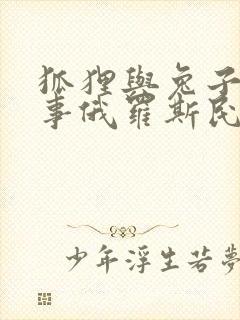 狐狸與兔子
事俄羅斯民
少年浮生若夢